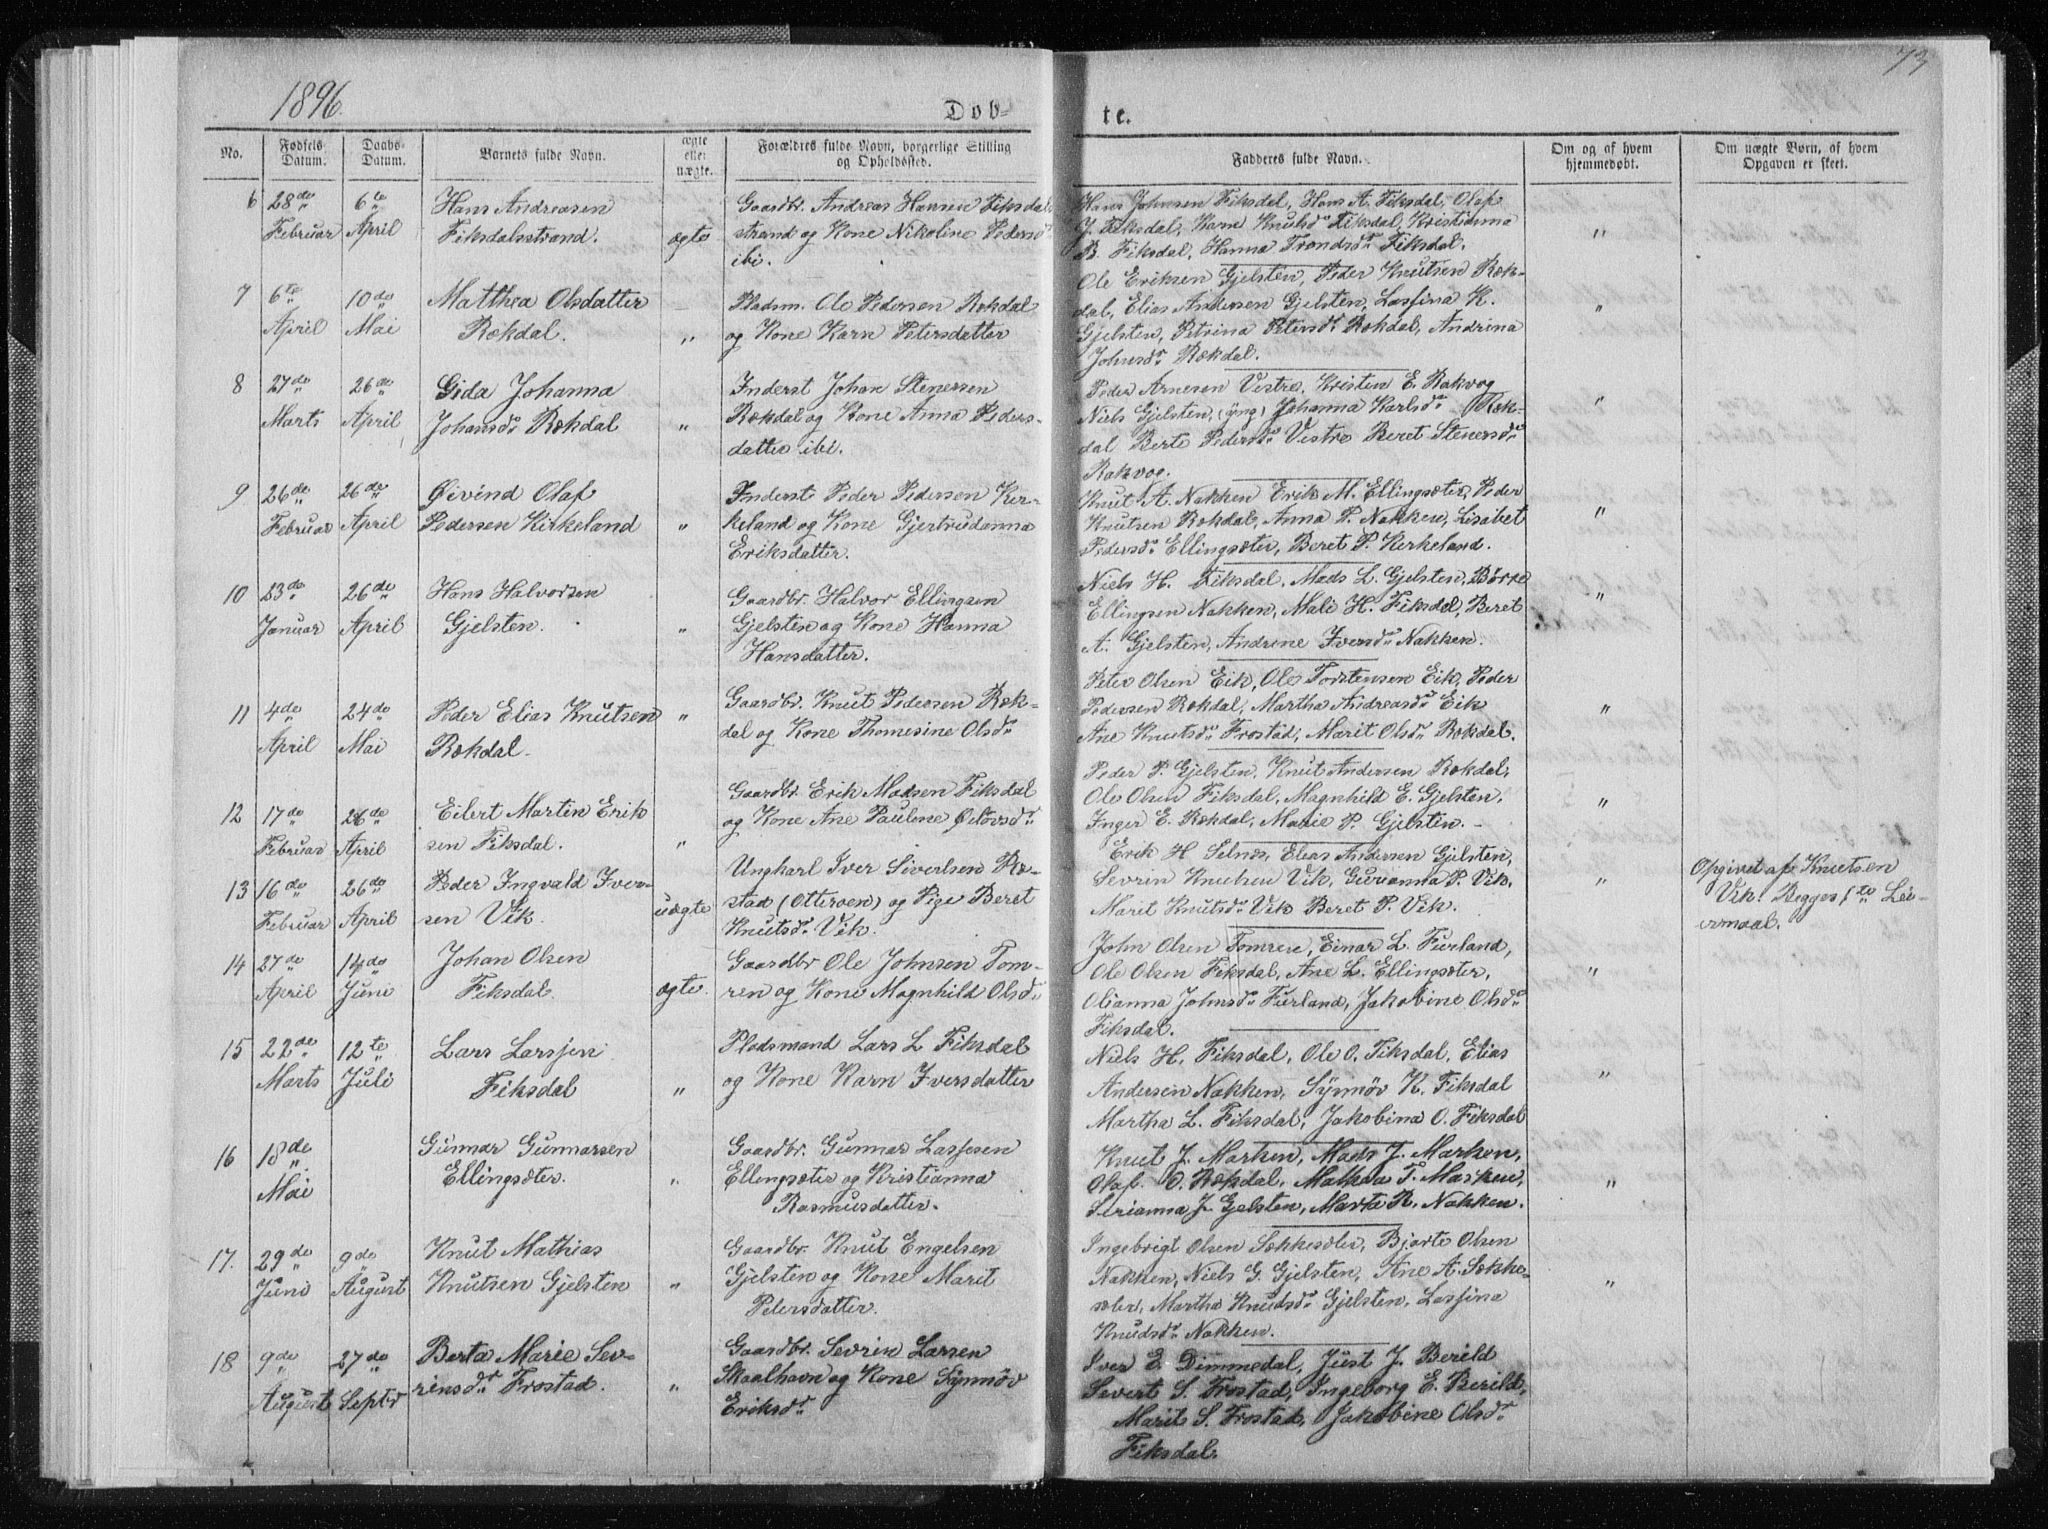 1896.
Døb-
te.
73
No.
Fødsels
Datum.
Daabs-
Datum.
Barnets fulde Navn.
ægte
eller
uægte.
Forældres fulde Navn, borgerlige Stilling
og Opholdssted.
Fadderes fulde Navn.
Om og af hvem
hjemmedøbt.
Om uægte Børn, af hvem
Opgaven er skeet.
6 28de 6te Hans Andreasen
Februar April Fiksdalsstrand. ægte
Gaardbr. Andreas Hansen Fiksdal-
strand og Kone Nikoline Pedersdr
ibi.
Hans Johnsen Fiksdal, Hans A. Fiksdal, Olaf
J. Fiksdal, Karn Knutsdr Fiksdal, Kristianna
B. Fiksdal, Hanna Trondsdr Fiksdal. "
7 6te 10de Matthea Olsdatter
April Mai Rekdal. "
Pladsm. Ole Pedersen Rekdal
og Kone Karn Petersdatter
Ole Eriksen Gjelsten, Peder Knutsen Rek-
dal, Elias Andersen Gjelsten, Lassina K.
Gjelsten, Petrina Petersdr Rekdal, Andrina
Johnsdr Rekdal. "
8 27de 26de Gida Johanna
Marts April Johansdr Rekdal "
Inderst Johan Stenersen
Rekdal og Kone Anna Peders-
datter ibi.
Peder Arnesen Vestre, Kristen E. Rakvog
Niels Gjelsten, (yng) Johanna Karlsdr Rek-
dal Berte Pedersdr Vestre Beret Stenersdr
Rakvog. "
9 26de 26de Øivind Olaf
Februar April Pedersen Kirkeland "
Inderst Peder Pedersen Kir-
keland og Kone Gjertrudanna
Eriksdatter.
Knut A. Nakken Erik M. Ellingsæter, Peder
Knutsen Rekdal, Anna P. Nakken, Lisabet
Pedersdr Ellingsæter, Beret P. Kerkeland. "
10 23de 26de Hans Halvorsen
Januar April Gjelsten. "
Gaardbr. Halvor Ellingsen
Gjelsten og Kone Hanna
Hansdatter.
Niels H. Fiksdal, Mads L. Gjelsten, Børre
Ellingsen Nakken, Mali H. Fiksdal, Beret
A. Gjelsten, Andrine Iversdr Nakken. "
11 4de 24de Peder Elias Knutsen "
April Mai Rekdal.
Gaardbr. Knut Pedersen Rek-
dal og Kone Thomesine Olsdr
Peter Olsen Eik, Ole Torstensen Eik, Peder
Pedersen Rekdal, Martha Andreasdr Eik
Ane Knutsdr Frostad, Marit Olsdr Rekdal. "
12 17de 26de Eilert Martin Erik
Februar April sen Fiksdal. "
Gaardbr. Erik Madsen Fiksdal
og Kone Ane Pauline Østovsdr
Peder P. Gjelsten, Knut Andersen Rekdal,
Ole Olsen Fiksdal, Magnhild E. Gjelsten,
Inger E. Rekdal, Marie P. Gjelsten. "
13 16de 26de Peder Ingvald Iver-
Februar April sen Vik. uægte
Ungkarl Iver Sivertsen Ræ-
stad (Otterøen) og Pige Beret
Knutsdr Vik.
Erik H Selnes, Elias Andersen Gjelsten,
Sevrin Knutsen Vik, Gurianna P. Vik.
Marit Knutsdr Vik Beret P. Vik. "
Opgivet af Knutsen
Vik. Begges 1te Lei-
ermaal.
14 27de 14de Johan Olsen
April Juni Fiksdal. ægte.
Gaardbr Ole Johnsen Tom-
ren og Kone Magnhild Olsdr
John Olsen Tomren, Einar L. Furland,
Ole Olsen Fiksdal, Ane L. Ellingsæter,
Olianna Johnsdr Furland, Jakobine Olsdr
Fiksdal. "
15 22de 12te Lars Larssen
Marts Juli Fiksdal "
Pladsmand Lars L Fiksdal
og Kone Karn Iversdatter
Niels H. Fiksdal, Ole O. Fiksdal, Elias
Andersen Nakken, Synnøv K. Fiksdal
Martha L. Fiksdal, Jakobina O. Fiksdal "
16 18de Gunnar Gunnarsen
Mai Ellingsæter. "
Gaardbr. Gunnar Lassesen
Ellingsæter og Kristianna
Rasmusdatter.
Knut J. Marken, Mads J. Marken,
Olaf O. Rekdal, Mathea T. Marken,
Sirianna J. Gjelsten, Marta R. Nakken. "
17. 29de 9de Knut Mathias
Juni August Knutsen Gjelsten "
Gaardbr. Knut Engelsen
Gjelsten og Kone Marit
Petersdatter.
Ingebrigt Olsen Sekkesæter, Bjarte Olsen
Nakken, Niels G. Gjelsten, Ane A. Sekke-
sæter, Martha Knudsdr Gjelsten, Lassina
Knudsdr Nakken. "
18 9de 27de Berta Marie Sev-
August Septr rinsdr Frostad. "
Gaardbr. Sevrin Larsen
Skaalhavn og Kone Synnøv
Eriksdr
Iver E. Dimmedal, Just J. Berild
Severt S. Frostad, Ingeborg E. Berild,
Marit S. Frostad, Jakobine Olsdr
Fiksdal.